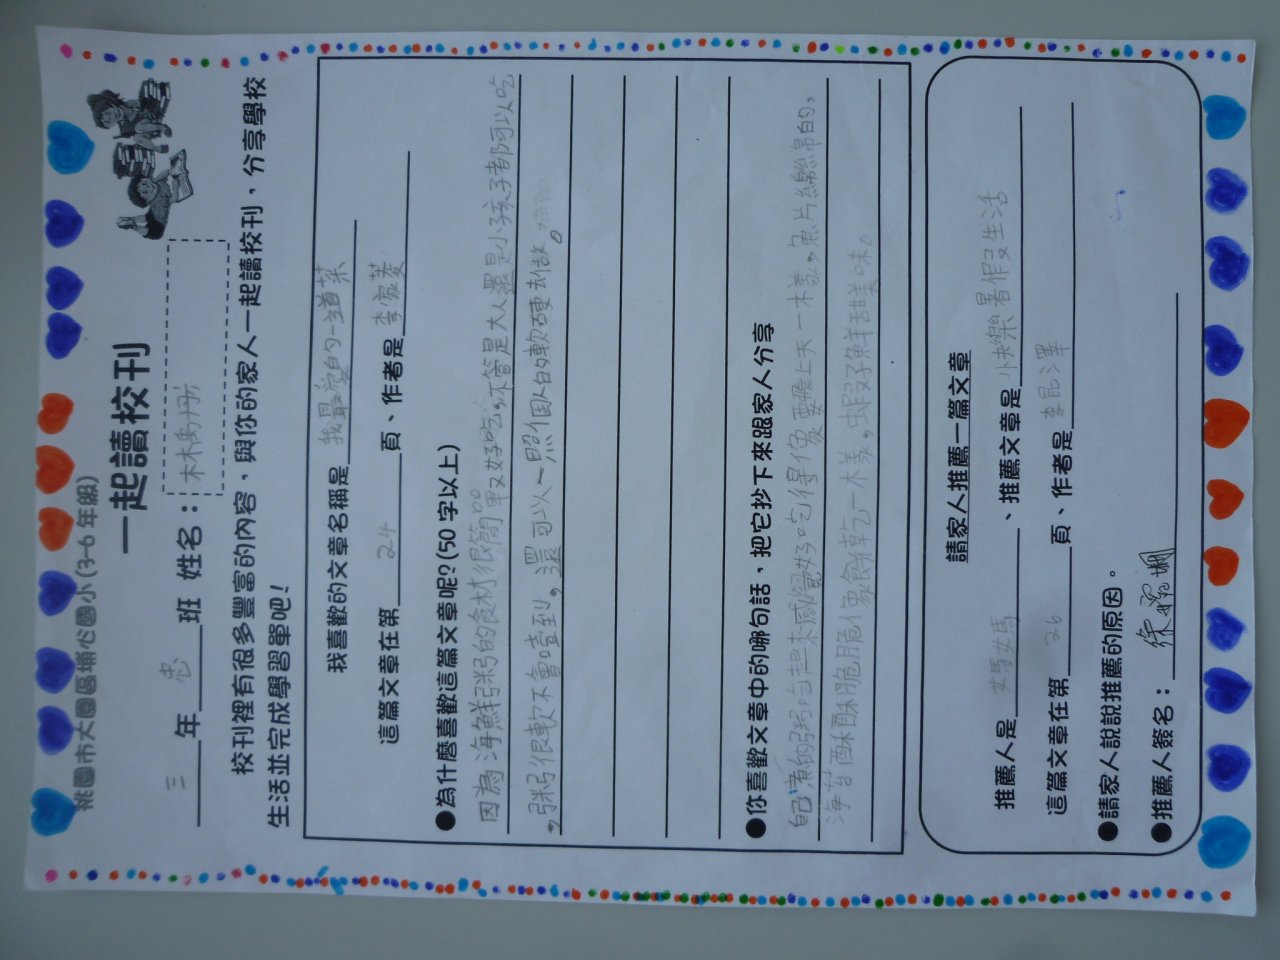 桃園市大園區埔心國小(3-6 年級)
一起讀校刊
三年忠班 姓名：林禹彤
校刊裡有很多豐富的內容，與你的家人一起讀校刊，分享學校
生活並完成學習單吧！
我喜歡的文章名稱是我最愛的一道菜
這篇文章在第24頁、作者是李家菱
●為什麼喜歡這篇文章呢?(50 字以上)
因為海鮮粥的食材很簡單又好吃，不管是大人還是小孩子都可以吃
，粥很軟不會噎到，還可以一照個人的軟硬去做。
●你喜歡文章中的哪句話，把它抄下來跟家人分享
自己煮的粥，吃起來感覺好吃得像要飛上天一樣，魚片綿綿的，
海苔酥酥脆脆像餅乾一樣，蝦子鮮甜美味。
請家人推薦一篇文章
推薦人是媽媽、推薦文章是快樂暑假生活
這篇文章在第26頁、作者是李昆澤
●請家人說說推薦的原因。
●推薦人簽名：徐